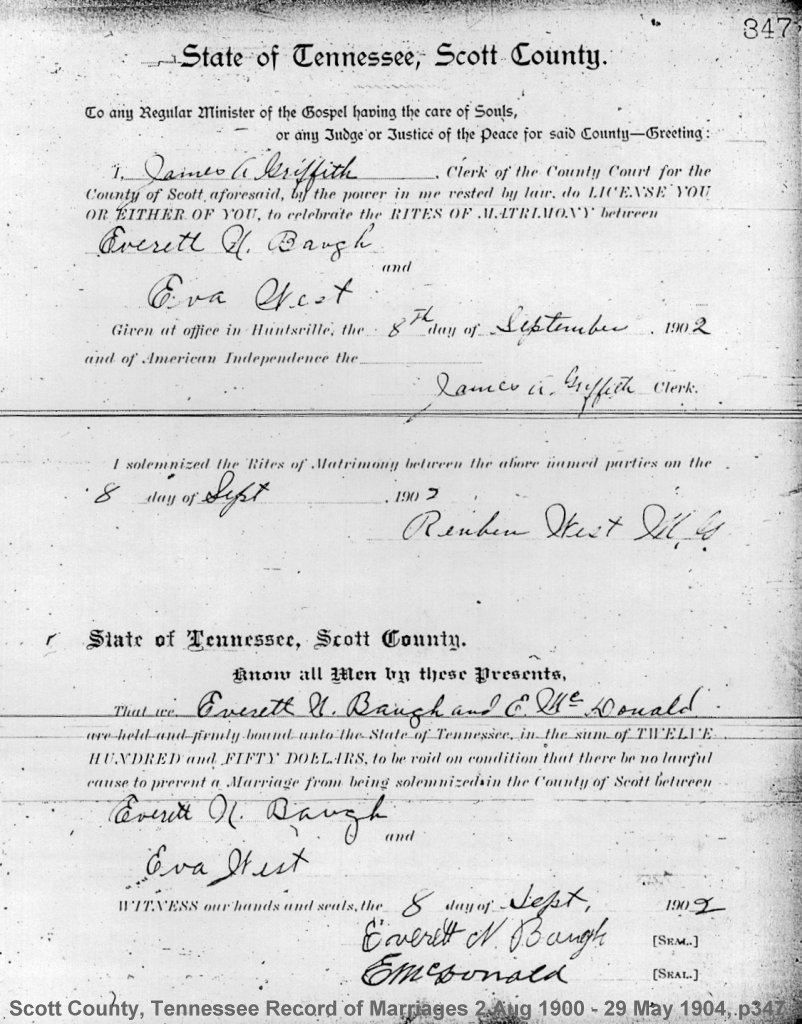 347
State of Tennessee, Scott County.
To any Regular Minister of the Gospel having the care of Souls,
or any Judge or Justice of the Peace for said County—Greeting:
I, James A Griffith, Clerk of the County Court for the
County of Scott aforesaid, by the power in me vested by law, do LICENSE YOU
OR EITHER OF YOU, to celebrate the RITES OF MATRIMONY between
Everett N. Baugh
and
Eva West
Given at office in Huntsville, the 8th day of September, 1902
and of American Independence the
James A. Griffith Clerk.
I solemnized the Rites of Matrimony between the above named parties on the
8 day of Sept, 1902
Reuben West M, G
State of Tennessee, Scott County.
Know all Men by these Presents,
That we Everett N. Baugh and E. McDonald
are held and firmly bound unto the State of Tennessee, in the sum of TWELVE
HUNDRED and FIFTY DOLLARS, to be void on condition that there be no lawful
cause to prevent a Marriage from being solemnized in the County of Scott between
Everett N. Baugh
and
Eva West
WITNESS our hands and seals, the 8 day of Sept, 1902
Everett N. Baugh [SEAL.]
E McDonald [SEAL.]
Scott County, Tennessee Record of Marriages 2 Aug 1900 - 29 May 1904, p347